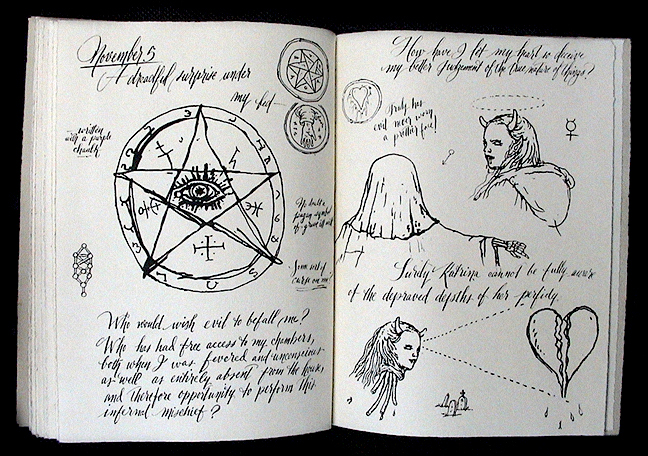 November 5
A dreadful surprise under
my bed—
written
with a purple
chaulk
No doubt a
pagan symbol
of great
Some sort of
curse on me!
Who would wish evil to befall me?
Who has had free access to my chambers,
both when I was fevered and unconscious
as well as entirely absent from the house,
and therefore opportunity to perform this
infernal mischief?
How have I let my heart so deceive
my better judgement of the true nature of things?
Truly has
evil never worn
a prettier face!
Surely Katrina cannot be fully aware
of the depraved depths of her perfidy.